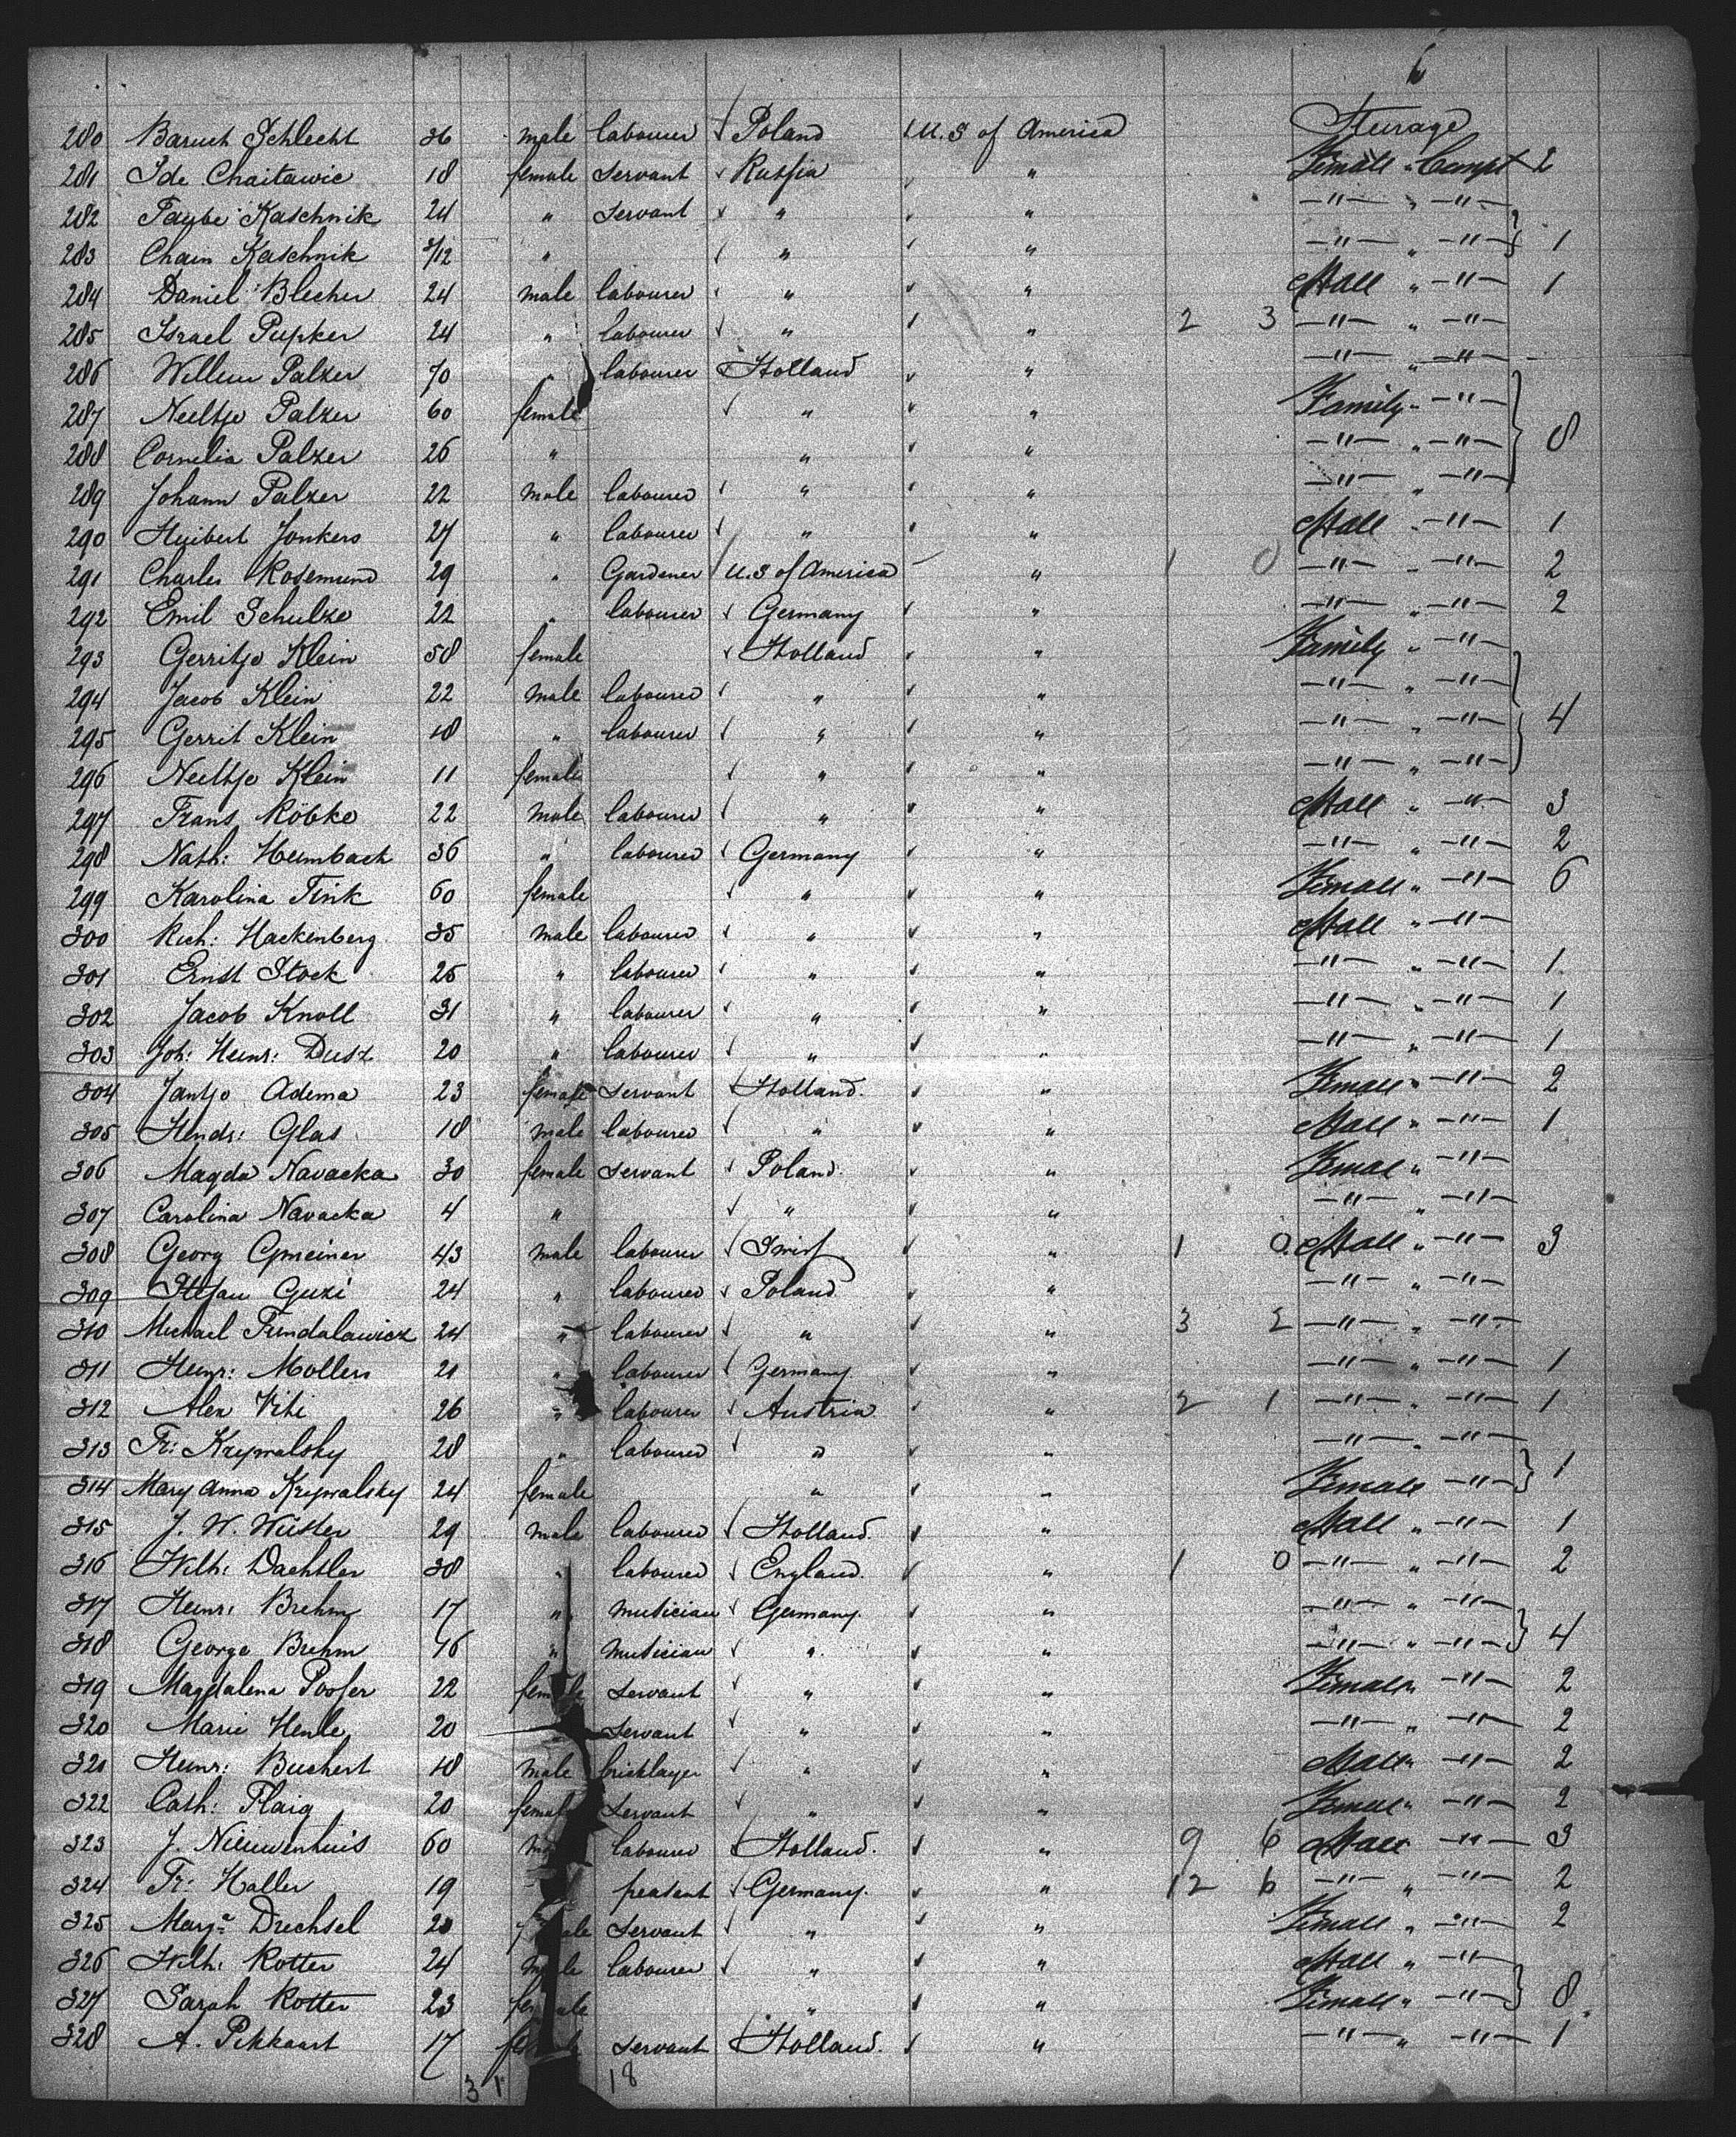 6
Sterage
280 Baruch Schlecht 36 male labourer Poland U.S of America
281 Ide Chaitawic 18 female Servant Russia " Female " Compt 2
282 Taybe Kaschnik 24 " Servant " " —"— " —"—
283 Chain Kaschnik /12 " " " —"— " —"— 1
284 Daniel Blecher 24 male labourer " " Male " —"— 1
285 Israel Pupker 24 " labourer " " 2 3 —"— " —"—
286 Willem Palzer 70 " labourer Holland " —"— " —"—
287 Neeltje Palzer 60 female " " Family " —"—
288 Cornelia Palzer 26 " " " —"— " —"— 8
289 Johann Palzer 22 male labourer " " —"— " —"—
290 Huibert Jonkers 27 " labourer " " Male " —"— 1
291 Charles Rosemund 29 " Gardener U.S of America " 1 0 —"— " —"— 2
292 Emil Schulze 22 " labourer Germany " —"— " —"— 2
293 Gerritje Klein 58 female Holland " Family " —"—
294 Jacob Klein 22 male labourer " " —"— " —"—
295 Gerrit Klein 18 " labourer " " —"— " —"— 4
296 Neeltje Klein 11 female " " —"— " —"—
297 Frans Röbke 22 male labourer " " Male " —"— 3
298 Nath: Heimbach 36 " labourer Germany " —"— " —"— 2
299 Karolina Fink 60 female " " Female " —"— 6
300 Rich: Hackenberg 35 male labourer " " Male " —"—
301 Ernst Stock 25 " labourer " " —"— " —"— 1
302 Jacob Knoll 31 " labourer " " —"— " —"— 1
303 Joh: Heinr: Dusz 20 " labourer " " —"— " —"— 1
304 Jantje Adema 23 female Servant Holland. " Female " —"— 2
305 Hendr: Glas 18 male labourer " " Male " —"— 1
306 Magda Navacka 30 female Servant Poland " Female " —"—
307 Carolina Navacka 4 " " " —"— " —"—
308 Georg Gmeiner 43 male labourer Swiss " 1 0 Male " —"— 3
309 Stefan Guzi 24 " labourer Poland " —"— " —"—
310 Michael Fundalawicz 24 " labourer " " 3 2 —"— " —"—
311 Heinr: Mollers 21 " labourer Germany " —"— " —"— 1
312 Alex Viti 26 " labourer Austria " 2 1 —"— " —"— 1
313 Fr: Krzywalsky 28 " labourer " " —"— " —"—
314 Mary Anna Krzywalsky 24 female " " Female —"— 1
315 J. W. Wüster 29 male labourer Holland. " Male " —"— 1
316 Wilh: Dachtler 38 " labourer England. " 1 0 —"— " —"— 2
317 Heinr: Brehm 17 " musician Germany. " —"— " —"—
318 George Brehm 16 " musician " " —"— " —"— 4
319 Magdalena Posser 22 female Servant " " Female " —"— 2
320 Marie Henle 20 Servant " " —"— " —"— 2
321 Heinr: Buchert 18 male bricklayer " " Male " —"— 2
322 Cath: Plaig 20 female Servant " " Female " —"— 2
323 J. Nieuwenhuis 60 labourer Holland. " 9 6 Male —"— 3
324 Fr: Haller 19 peasant Germany. " 12 6 —"— " —"— 2
325 Marg: Drechsel 20 female Servant " " Female " —"— 2
326 Wilh: Rotter 24 male labourer " " Male " —"—
327 Sarah Rotter 23 female " " Female " —"— 8
328 A. Pikkaart 17 Servant Holland. " —"— " —"— 1
31 18